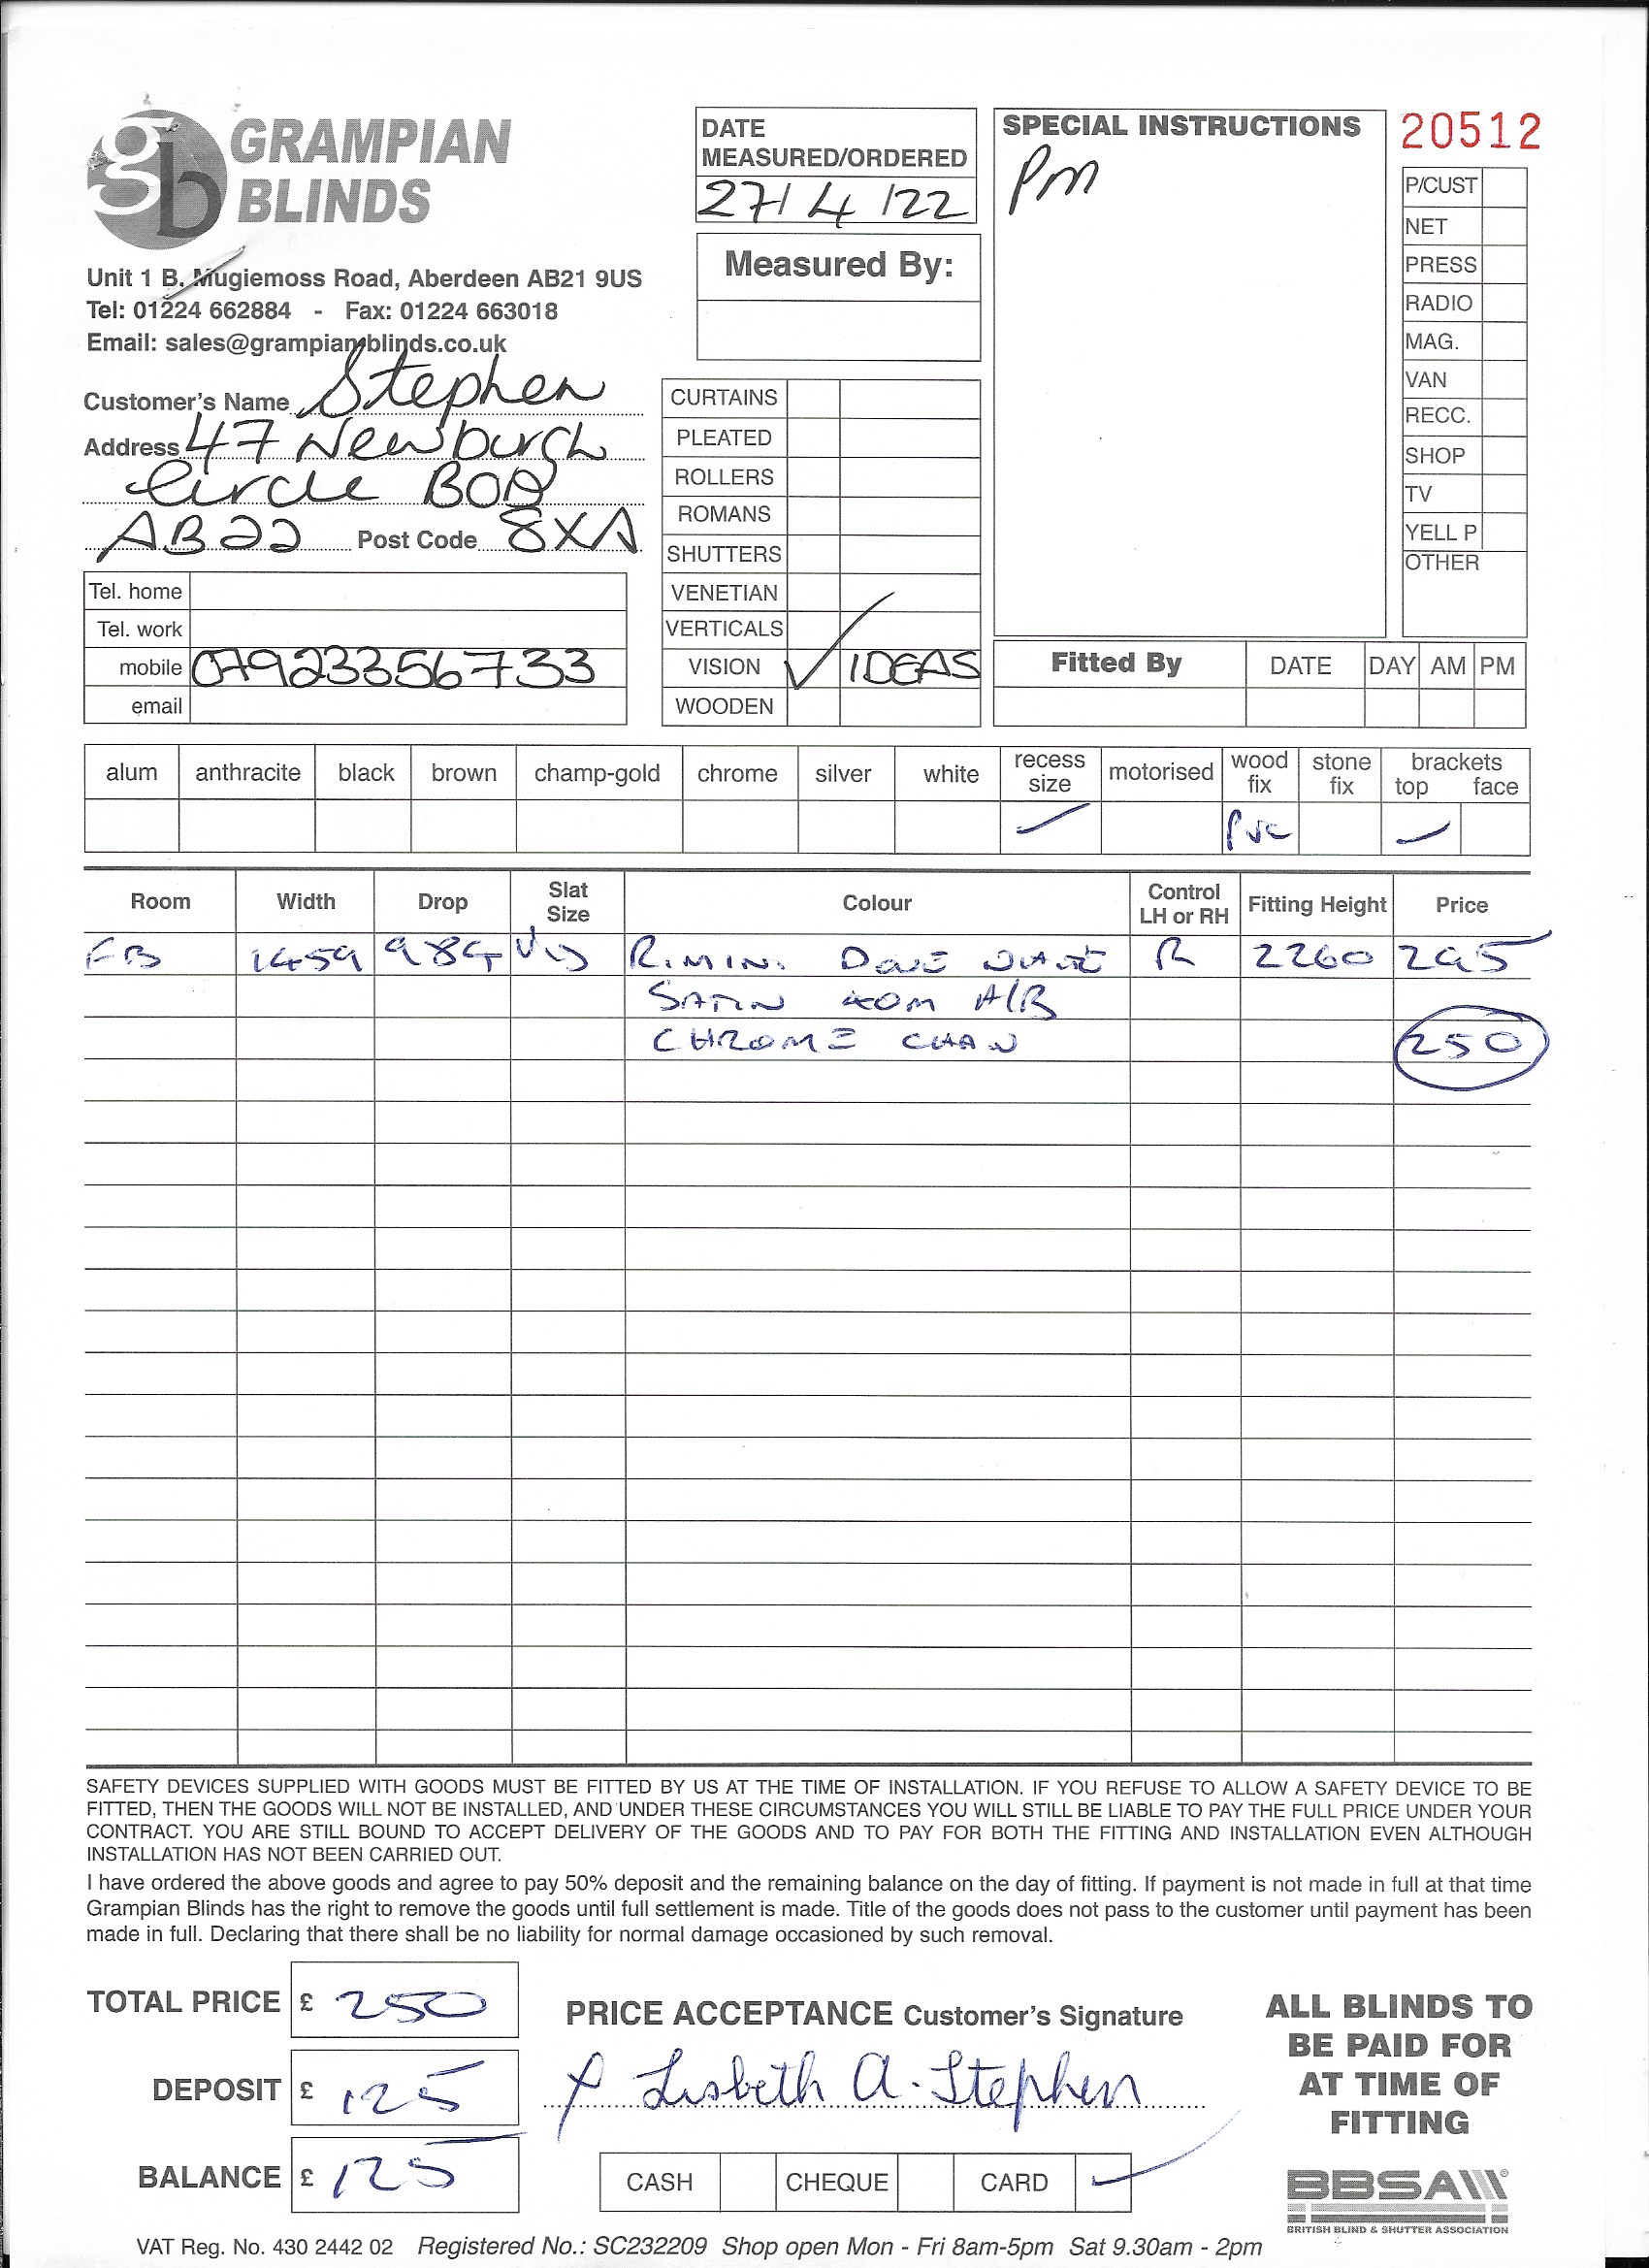 gb GRAMPIAN
BLINDS
Unit 1 B, Mugiemoss Road, Aberdeen AB21 9US
Tel: 01224 662884 - Fax: 01224 663018
Email: sales@grampianblinds.co.uk
Customer's Name Stephen
Address 47 Newburgh
Circle BOD
AB22 Post Code 8XA
Tel. home
Tel. work
mobile 07923356733
email
DATE
MEASURED/ORDERED
27/4/22
Measured By:
CURTAINS
PLEATED
ROLLERS
ROMANS
SHUTTERS
VENETIAN
VERTICALS
VISION ✓ IDEAS
WOODEN
SPECIAL INSTRUCTIONS
Pm
20512
P/CUST
NET
PRESS
RADIO
MAG.
VAN
RECC.
SHOP
TV
YELL P
OTHER
Fitted By DATE DAY AM PM
alum anthracite black brown champ-gold chrome silver white recess size motorised wood fix stone fix brackets top face
✓ PVC ✓
Room Width Drop Slat Size Colour Control LH or RH Fitting Height Price
FB 1459 984 VIS RIMINI DOVE R 2260 295
SATIN COM A/B
CHROME CHAIN 250
SAFETY DEVICES SUPPLIED WITH GOODS MUST BE FITTED BY US AT THE TIME OF INSTALLATION. IF YOU REFUSE TO ALLOW A SAFETY DEVICE TO BE
FITTED, THEN THE GOODS WILL NOT BE INSTALLED, AND UNDER THESE CIRCUMSTANCES YOU WILL STILL BE LIABLE TO PAY THE FULL PRICE UNDER YOUR
CONTRACT. YOU ARE STILL BOUND TO ACCEPT DELIVERY OF THE GOODS AND TO PAY FOR BOTH THE FITTING AND INSTALLATION EVEN ALTHOUGH
INSTALLATION HAS NOT BEEN CARRIED OUT.
I have ordered the above goods and agree to pay 50% deposit and the remaining balance on the day of fitting. If payment is not made in full at that time
Grampian Blinds has the right to remove the goods until full settlement is made. Title of the goods does not pass to the customer until payment has been
made in full. Declaring that there shall be no liability for normal damage occasioned by such removal.
TOTAL PRICE £ 250
DEPOSIT £ 125
BALANCE £ 125
PRICE ACCEPTANCE Customer's Signature
x Lisbeth A. Stephen
CASH CHEQUE CARD ✓
ALL BLINDS TO
BE PAID FOR
AT TIME OF
FITTING
BBSA
BRITISH BLIND & SHUTTER ASSOCIATION
VAT Reg. No. 430 2442 02 Registered No.: SC232209 Shop open Mon - Fri 8am-5pm Sat 9.30am - 2pm